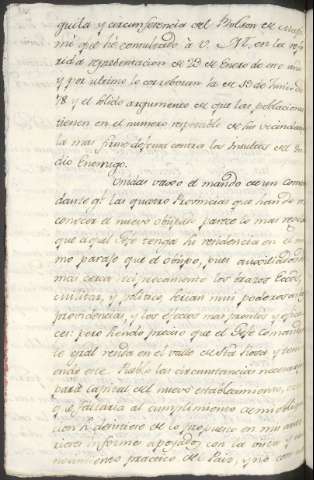 guila y circunferencia del Bolson de Mapi
mi que hé consultado à V. M. en la refe
rida representacion de 29 de Enero de este año
y por ultimo lo corroboran la de 10 de Junio de
78 y el sólido argumento de que las poblaciones
tienen en el numero respetable de su vecindario
la mas firme defensa contra los Insultos del In
dio Enemigo.
Unidas vaxo el mando de un Coman
dante gral las quatro Provincias que han de re
conocer el nuevo obispado parece lo mas regular
que aquel Gefe tenga su residencia en el mis
mo parage que el obispo, pues auxiliandose
mas cerca reciprocamente los brazos Eccos,
militar, y politico, serian mui poderosas las
providencias, y los efectos mas prontos y efica
ces: pero siendo preciso que el Gefe Comandan
te gral resida en el valle de Sta Rosa, y tenien
do este Pueblo las circunstancias necesarias
para capital del nuevo establecimiento,
que faltaria al cumplimiento de mi obliga
cion si desistiese de lo propuesto en mis ante
riores informes apoyados con la vista y co
nocimiento practico del Pais, y no con